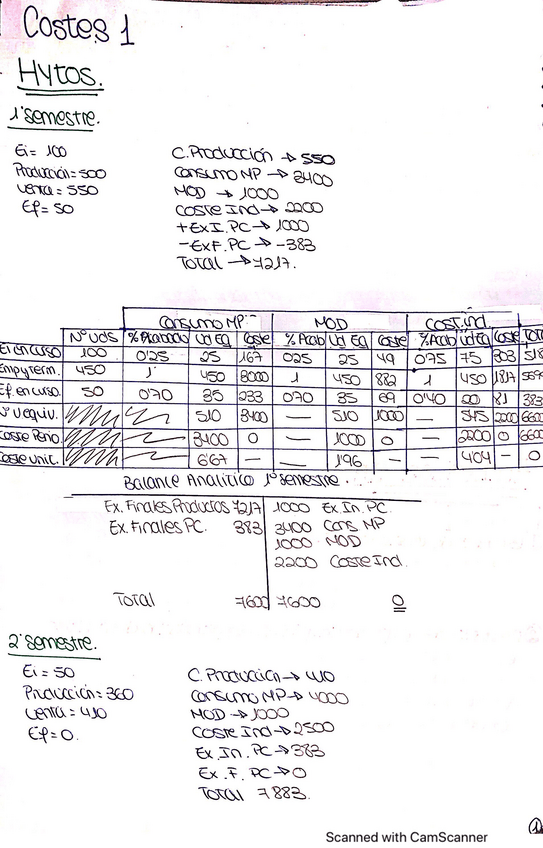 Costes 1
Hytos.
1º semestre.
Ei = 100
Producción = 500
Venta = 550
Ef = 50
C. Producción → 550
Consumo MP → 3400
MOD → 1000
Coste Ind → 2200
+ Ex I. PC → 1000
- Ex F. PC → -383
Total → 7217.
Consumo MP MOD Cost. ind
Nº uds %Acabado Ud Eq Coste % Acab Ud Eq Coste % Acab Ud Eq Coste Total
Ei en curso 100 0'25 25 167 025 25 49 0'75 75 303 518
Emp y term. 450 1 450 3000 1 450 882 1 450 1817
Ef. en curso 50 0'70 35 233 070 35 69 0'40 20 81 383
Nº U equiv. 510 3400 — 510 1000 — 545 2200 6600
3400 0 — 1000 0 — 2200 0 6600
Coste Unit. 6'67 — — 1'96 — — 4'04 — 0
Balance Analítico 1º semestre.
Ex. Finales Productos 7217 1000 Ex In. PC
Ex. Finales PC. 383 3400 Cons MP
1000 MOD
2200 Coste Ind.
Total 7600 7600 0
2º semestre.
Ei = 50
Producción = 360
Venta = 410
Ef = 0.
C. Producción → 410
Consumo MP → 4000
MOD → 1000
Coste Ind → 2500
Ex. In. PC → 383
Ex. F. PC → 0
Total 7883.
Scanned with CamScanner